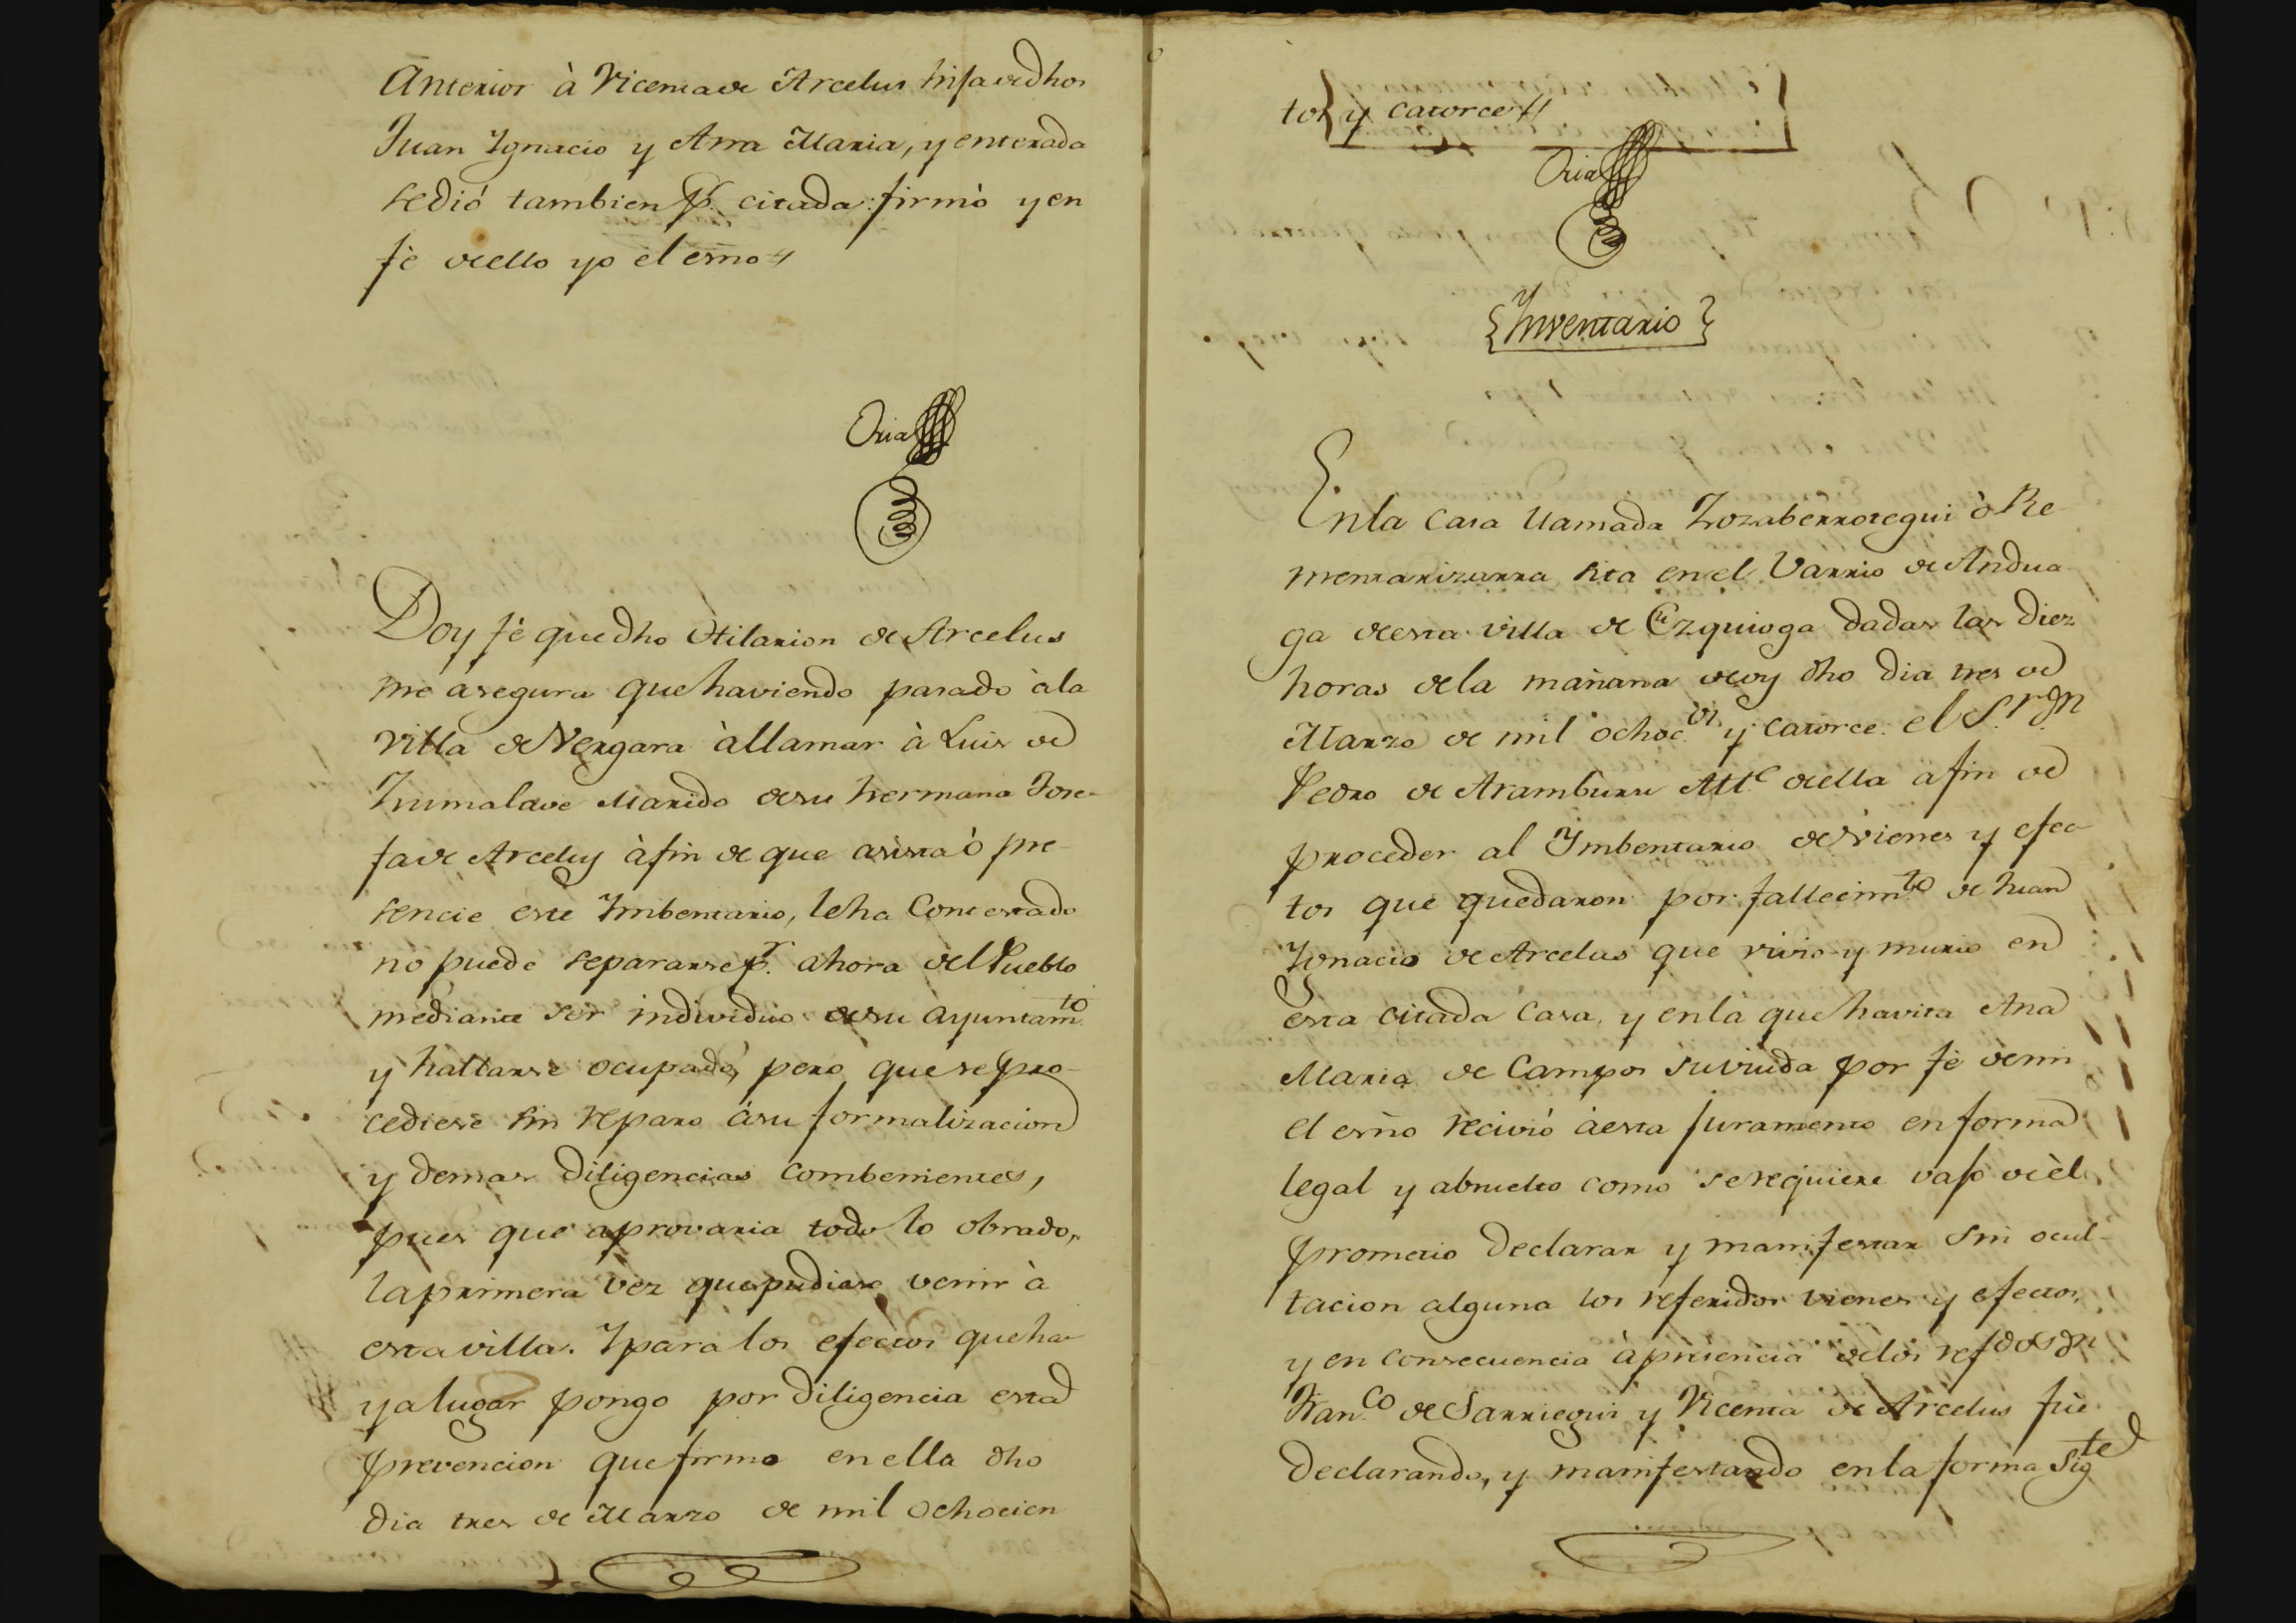 Anterior à Vicenta de Arcelus hija de dhos
Juan Ygnacio y Ana Maria, y enterada
se dió tambien pr. citada: firmò y en
fè de ello yo el esno
Oria
Doy fè que dho Hilarion de Arcelus
me asegura que haviendo pasado à la
villa de Vergara à llamar à Luis de
Irumalave Marido de su hermana Jose-
fa de Arcelus à fin de que asista ò pre-
sencie este Imbentario, le ha Contestado
no puede separarse pr. ahora del Pueblo
mediante ser individuo de su ayuntamto
y hallarse ocupado, pero que se pro-
cediese sin reparo à su formalizacion
y demas diligencias combenientes,
pues que aprovaria todo lo obrado,
la primera vez que pudiese venir à
esta villa. Y para los efectos que ha-
ya lugar pongo por diligencia esta
prevencion que firmo en ella dho
dia tres de Marzo de mil ochocien
tos y catorce
Oria
Inventario
En la casa llamada Zozaberrotegui ò Re
mentarizarra sita en el Varrio de Andua-
ga de esta villa de Ezquioga dadas las diez
horas de la mañana de oy dho dia tres de
Marzo de mil ochoc.os y catorce: el S.r Dn
Pedro de Aramburu Alle de ella a fin de
proceder al Ymbentario de vienes y efec-
tos que quedaron por fallecimto de Juan
Ygnacio de Arcelus que vivio y murio en
esta citada Casa, y en la que havita Ana
Maria de Campos su viuda por fè de mi
el esno recivió à esta juramento en forma
legal y absuelto como se requiere vajo de èl
prometio declarar y manifestar sin ocul-
tacion alguna los referidos vienes y efectos,
y en consecuencia à presencia de los refdos Dn
Franco de Sarriegui y Vicenta de Arcelus fuè
declarando, y manifestando en la forma sigte